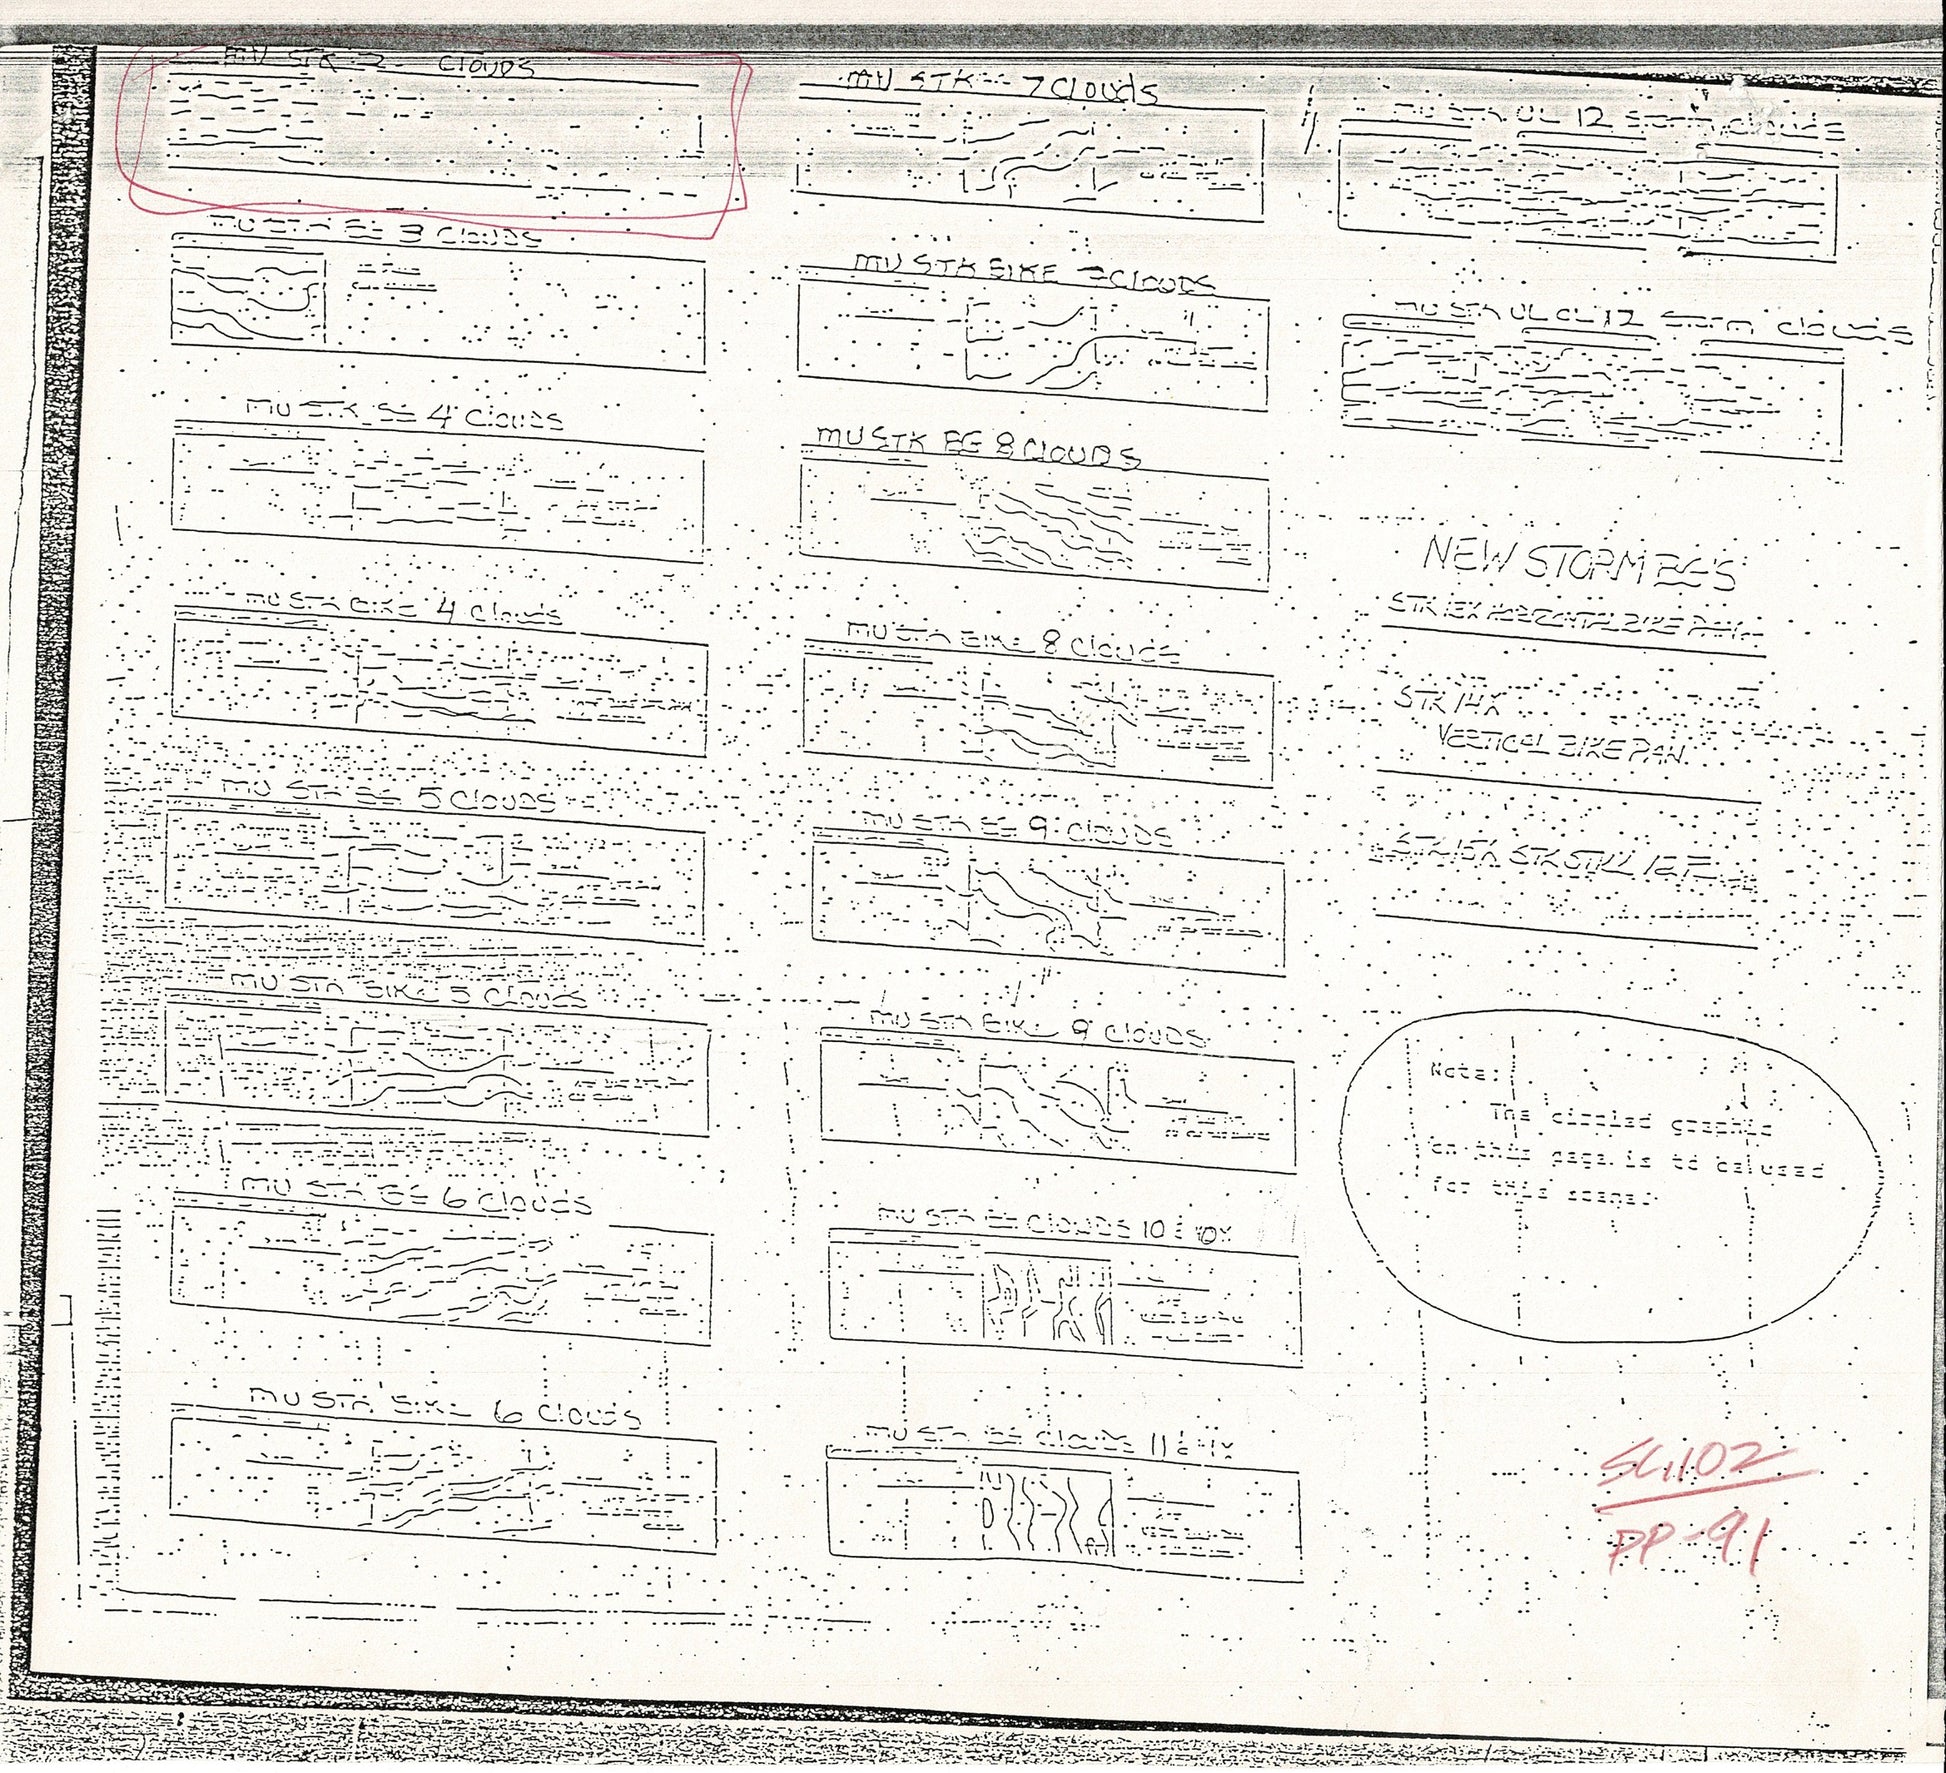 MU STK 2 CLOUDS
MU STK BG 3 CLOUDS
MU STK BG 4 Clouds
MU STK BIKE 4 Clouds
MU STK BG 5 CLOUDS
MU STK BIKE 5 Clouds
MU STK BG 6 Clouds
MU STK BIKE 6 Clouds
MU STK BG 7 Clouds
MU STK BIKE Clouds
MU STK BG 8 CLOUDS
MU STK BIKE 8 Clouds
MU STK BG 9 CLOUDS
MU STK BIKE 9 Clouds
MU STK BG CLOUDS 10 & 10X
MU STK BG Clouds 11 &
MU STK UL 12 storm clouds
MU STK UL CL 12 storm clouds
NEW STORM BG'S
BIKE PAN
STK 14X
VERTICAL BIKE PAN
STK 15X STK STILL
Note:
The circled graphic
on this page is to be used
for this scene.
SC. 102
PP-91